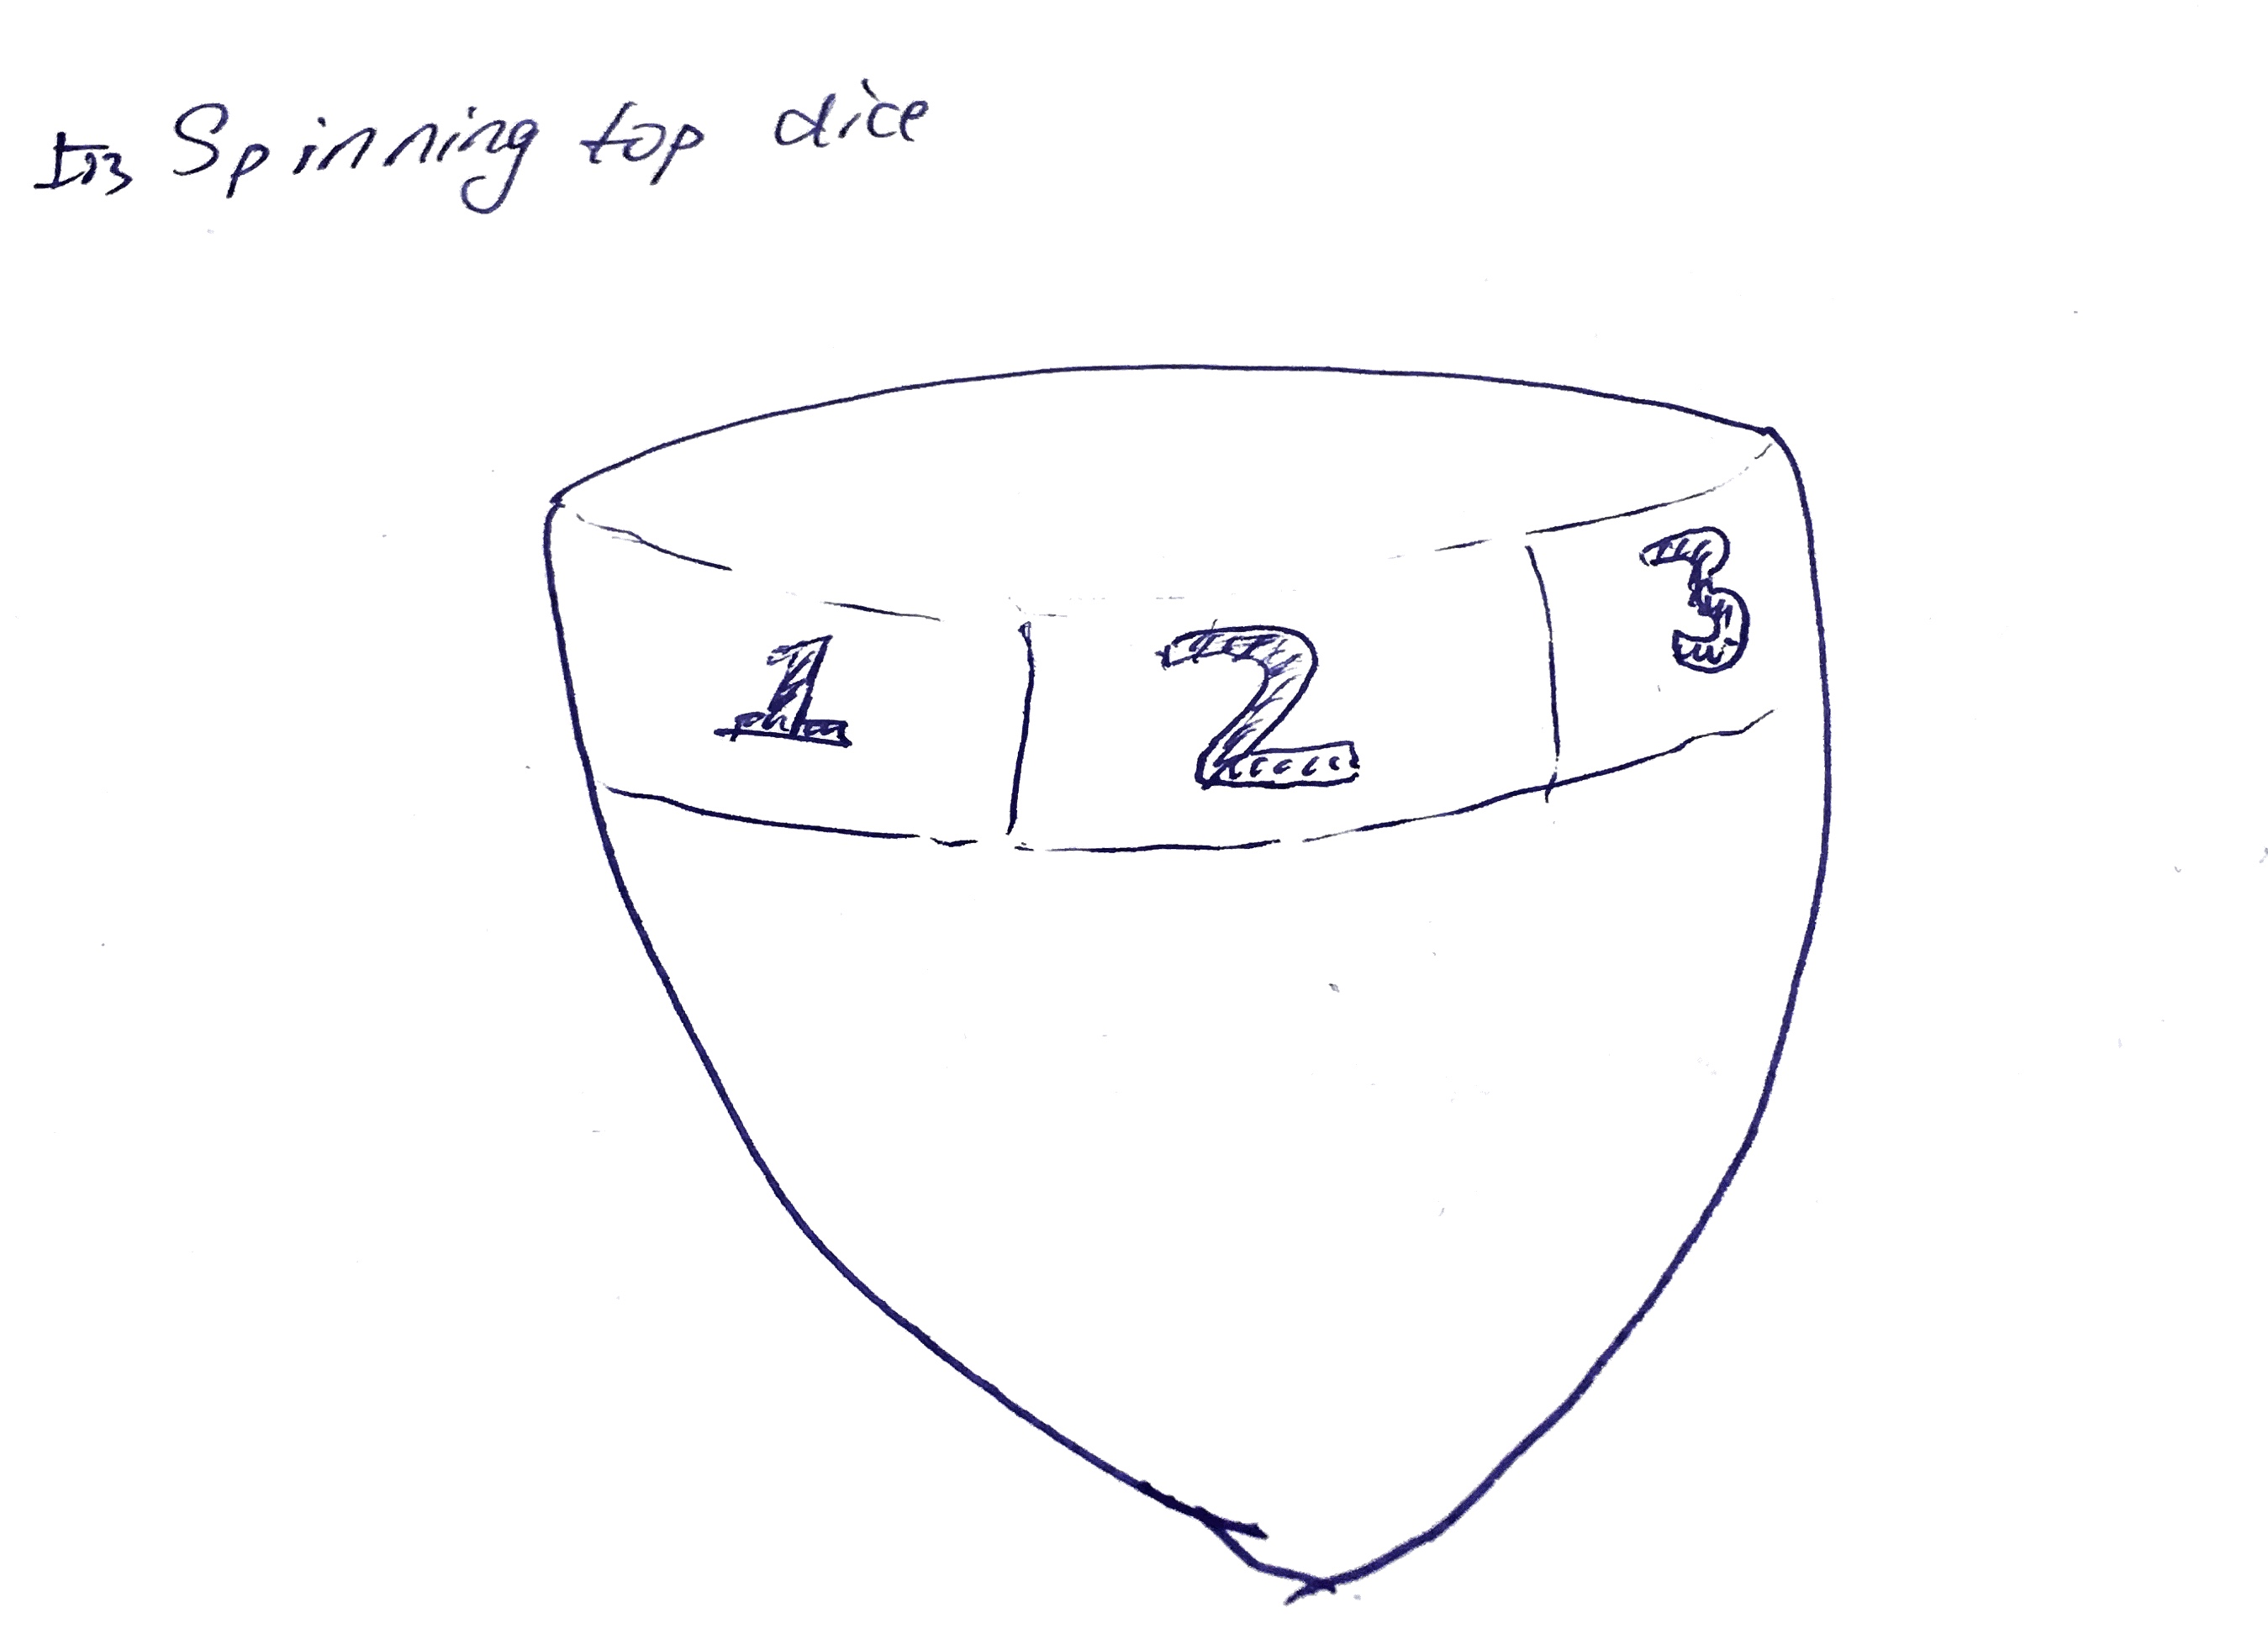 Spinning top dice
1 2 3